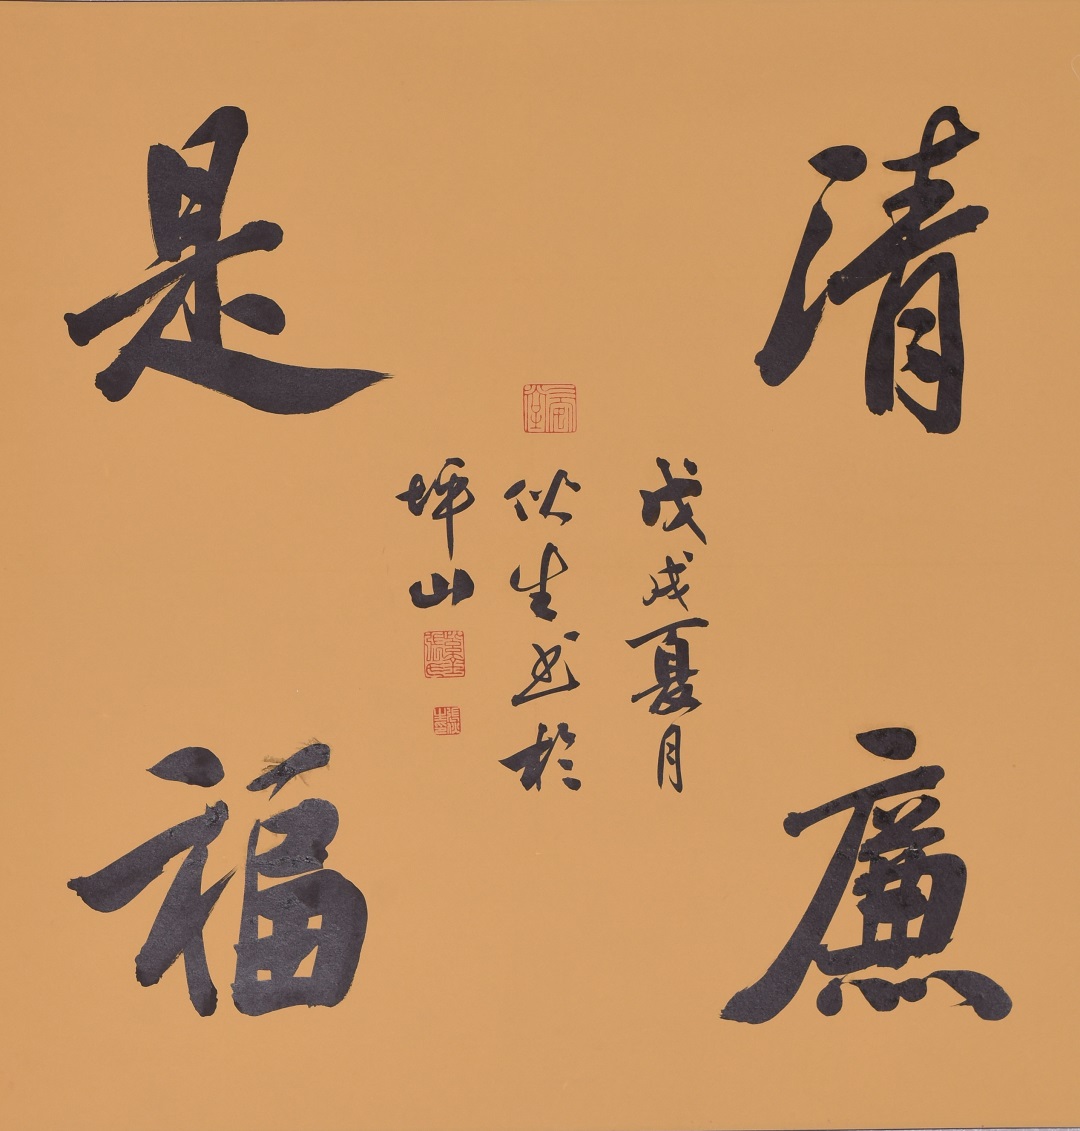 清廉
是福
戊戌夏月
伙生书於
坪山